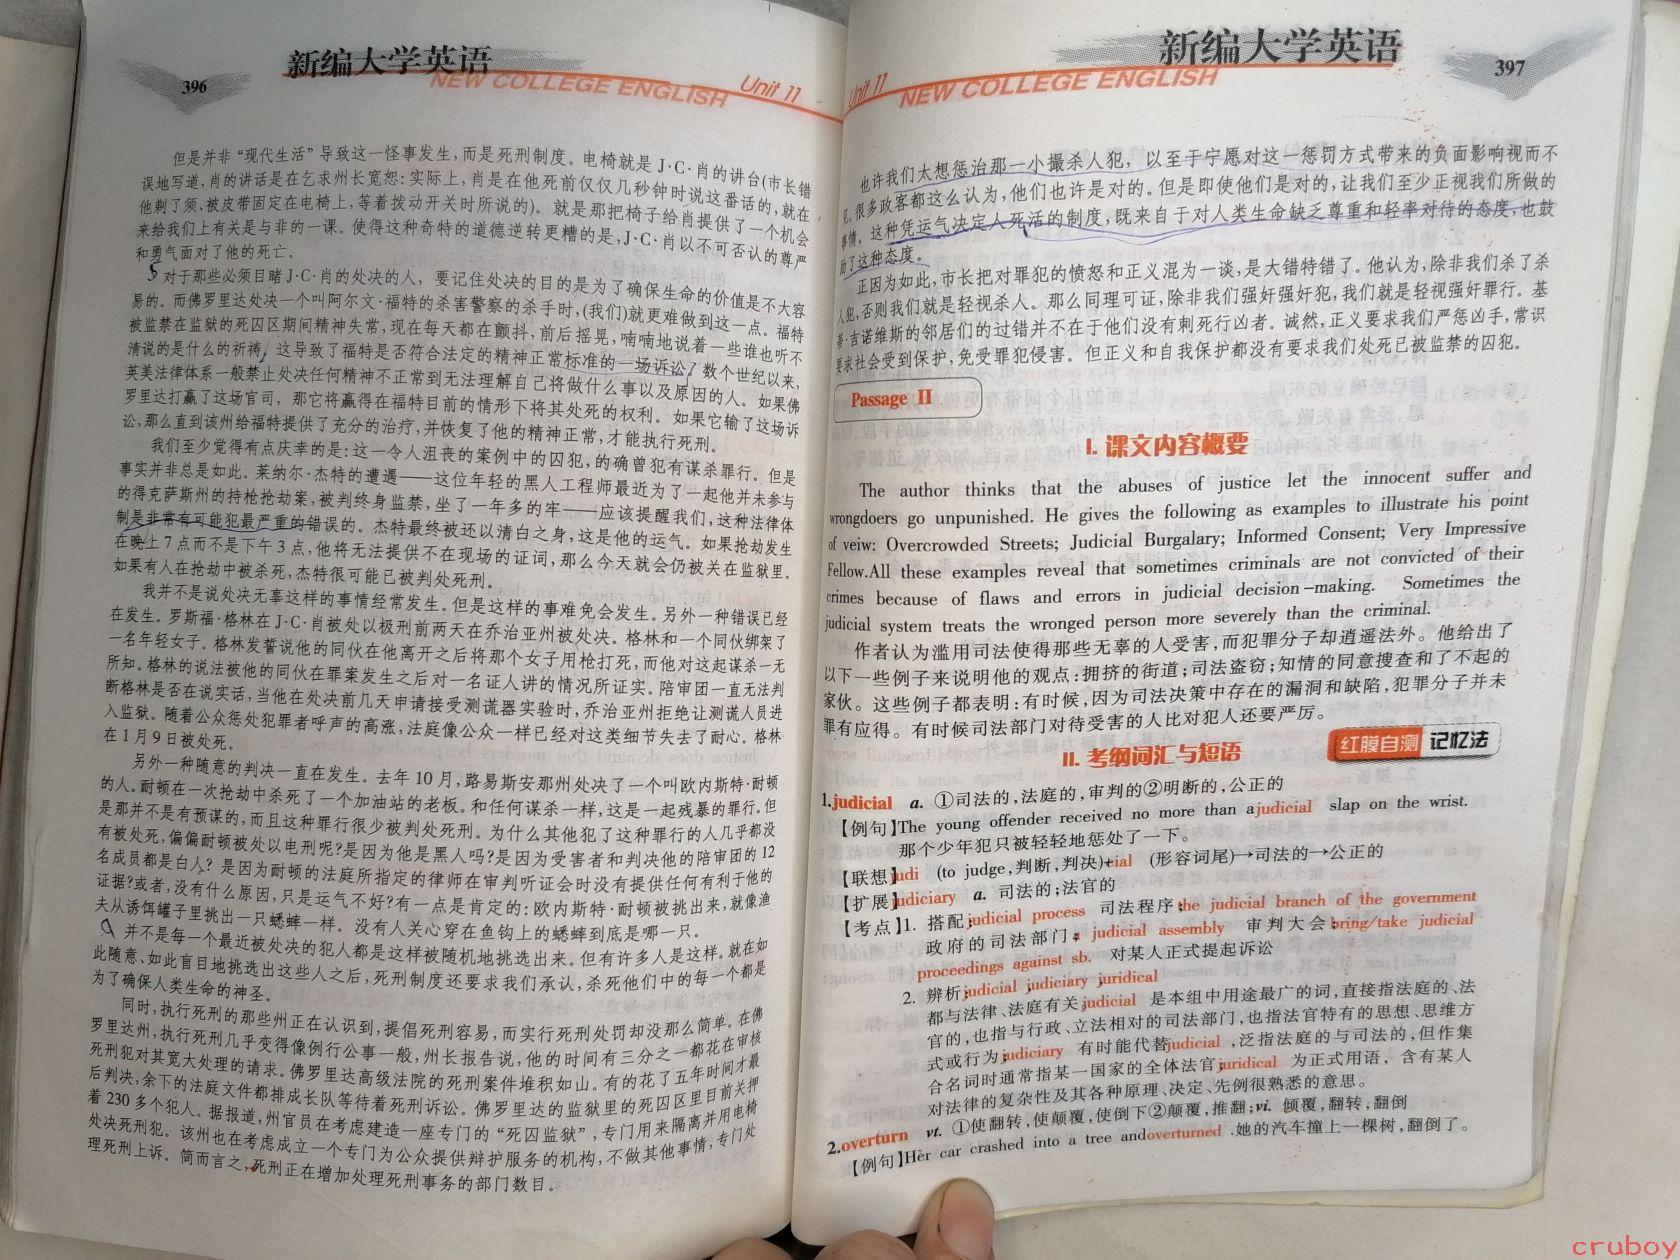 396
新编大学英语
NEW COLLEGE ENGLISH
Unit 11
但是并非“现代生活”导致这一怪事发生,而是死刑制度。电椅就是J·C·肖的讲台(市长错
误地写道,肖的讲话是在乞求州长宽恕:实际上,肖是在他死前仅仅几秒钟时说这番话的,就在
他剃了须、被皮带固定在电椅上,等着拨动开关时所说的)。就是那把椅子给肖提供了一个机会
来给我们上有关是与非的一课。使得这种奇特的道德逆转更糟的是,J·C·肖以不可否认的尊严
和勇气面对了他的死亡。
对于那些必须目睹J·C·肖的处决的人,要记住处决的目的是为了确保生命的价值是不大容
易的。而佛罗里达处决一个叫阿尔文·福特的杀害警察的杀手时,(我们)就更难做到这一点。福特
被监禁在监狱的死囚区期间精神失常,现在每天都在颤抖,前后摇晃,喃喃地说着一些谁也听不
清说的是什么的祈祷,这导致了福特是否符合法定的精神正常标准的一场诉讼。数个世纪以来,
英美法律体系一般禁止处决任何精神不正常到无法理解自己将做什么事以及原因的人。如果佛
罗里达打赢了这场官司,那它将赢得在福特目前的情形下将其处死的权利。如果它输了这场诉
讼,那么直到该州给福特提供了充分的治疗,并恢复了他的精神正常,才能执行死刑。
我们至少觉得有点庆幸的是:这一令人沮丧的案例中的囚犯,的确曾犯有谋杀罪行。但是
事实并非总是如此。莱纳尔·杰特的遭遇——这位年轻的黑人工程师最近为了一起他并未参与
的得克萨斯州的持枪抢劫案,被判终身监禁,坐了一年多的牢——应该提醒我们,这种法律体
制是非常有可能犯最严重的错误的。杰特最终被还以清白之身,这是他的运气。如果抢劫发生
在晚上7点而不是下午3点,他将无法提供不在现场的证词,那么今天就会仍被关在监狱里。
如果有人在抢劫中被杀死,杰特很可能已被判处死刑。
我并不是说处决无辜这样的事情经常发生。但是这样的事难免会发生。另外一种错误已经
在发生。罗斯福·格林在J·C·肖被处以极刑前两天在乔治亚州被处决。格林和一个同伙绑架了
一名年轻女子。格林发誓说他的同伙在他离开之后将那个女子用枪打死,而他对这起谋杀一无
所知。格林的说法被他的同伙在罪案发生之后对一名证人讲的情况所证实。陪审团一直无法判
断格林是否在说实话,当他在处决前几天申请接受测谎器实验时,乔治亚州拒绝让测谎人员进
入监狱。随着公众惩处犯罪者呼声的高涨,法庭像公众一样已经对这类细节失去了耐心。格林
在1月9日被处死。
另外一种随意的判决一直在发生。去年10月,路易斯安那州处决了一个叫欧内斯特·耐顿
的人。耐顿在一次抢劫中杀死了一个加油站的老板。和任何谋杀一样,这是一起残暴的罪行。但
是那并不是有预谋的,而且这种罪行很少被判处死刑。为什么其他犯了这种罪行的人几乎都没
有被处死,偏偏耐顿被处以电刑呢?是因为他是黑人吗?是因为受害者和判决他的陪审团的12
名成员都是白人?是因为耐顿的法庭所指定的律师在审判听证会时没有提供任何有利于他的
证据?或者,没有什么原因,只是运气不好?有一点是肯定的:欧内斯特·耐顿被挑出来,就像渔
夫从诱饵罐子里挑出一只蟋蟀一样。没有人关心穿在鱼钩上的蟋蟀到底是哪一只。
并不是每一个最近被处决的犯人都是这样被随机地挑选出来。但有许多人是这样。就在如
此随意、如此盲目地挑选出这些人之后,死刑制度还要求我们承认,杀死他们中的每一个都是
为了确保人类生命的神圣。
同时,执行死刑的那些州正在认识到,提倡死刑容易,而实行死刑处罚却没那么简单。在佛
罗里达州,执行死刑几乎变得像例行公事一般,州长报告说,他的时间有三分之一都花在审核
死刑犯对其宽大处理的请求。佛罗里达高级法院的死刑案件堆积如山。有的花了五年时间才最
后判决,余下的法庭文件都排成长队等待着死刑诉讼。佛罗里达的监狱里的死囚区里目前关押
着230多个犯人。据报道,州官员在考虑建造一座专门的“死囚监狱”,专门用来隔离并用电椅
处决死刑犯。该州也在考虑成立一个专门为公众提供辩护服务的机构,不做其他事情,专门处
理死刑上诉。简而言之,死刑正在增加处理死刑事务的部门数目。
Unit 11
新编大学英语
NEW COLLEGE ENGLISH
397
也许我们太想惩治那一小撮杀人犯,以至于宁愿对这一惩罚方式带来的负面影响视而不
见,很多政客都这么认为,他们也许是对的。但是即使他们是对的,让我们至少正视我们所做的
事情。这种凭运气决定人死活的制度,既来自于对人类生命缺乏尊重和轻率对待的态度,也鼓
励了这种态度。
正因为如此,市长把对罪犯的愤怒和正义混为一谈,是大错特错了。他认为,除非我们杀了杀
人犯,否则我们就是轻视杀人。那么同理可证,除非我们强奸强奸犯,我们就是轻视强奸罪行。基
蒂·吉诺维斯的邻居们的过错并不在于他们没有刺死行凶者。诚然,正义要求我们严惩凶手,常识
要求社会受到保护,免受罪犯侵害。但正义和自我保护都没有要求我们处死已被监禁的囚犯。
Passage II
I. 课文内容概要
The author thinks that the abuses of justice let the innocent suffer and
wrongdoers go unpunished. He gives the following as examples to illustrate his point
of veiw: Overcrowded Streets; Judicial Burgalary; Informed Consent; Very Impressive
Fellow.All these examples reveal that sometimes criminals are not convicted of their
crimes because of flaws and errors in judicial decision-making. Sometimes the
judicial system treats the wronged person more severely than the criminal.
作者认为滥用司法使得那些无辜的人受害,而犯罪分子却逍遥法外。他给出了
以下一些例子来说明他的观点:拥挤的街道;司法盗窃;知情的同意搜查和了不起的
家伙。这些例子都表明:有时候,因为司法决策中存在的漏洞和缺陷,犯罪分子并未
罪有应得。有时候司法部门对待受害的人比对犯人还要严厉。
II. 考纲词汇与短语
红膜自测 记忆法
1.judicial a. ①司法的,法庭的,审判的②明断的,公正的
【例句】The young offender received no more than a judicial slap on the wrist.
那个少年犯只被轻轻地惩处了一下。
【联想】judi (to judge,判断,判决)+cial (形容词尾)→司法的→公正的
【扩展】judiciary a. 司法的;法官的
【考点】1. 搭配:judicial process 司法程序;the judicial branch of the government
政府的司法部门; judicial assembly 审判大会;bring/take judicial
proceedings against sb. 对某人正式提起诉讼
2. 辨析:judicial judiciary juridical
都与法律、法庭有关;judicial 是本组中用途最广的词,直接指法庭的、法
官的,也指与行政、立法相对的司法部门,也指法官特有的思想、思维方
式或行为;judiciary 有时能代替judicial ,泛指法庭的与司法的,但作集
合名词时通常指某一国家的全体法官;juridical 为正式用语,含有某人
对法律的复杂性及其各种原理、决定、先例很熟悉的意思。
2.overturn vt. ①使翻转,使颠覆,使倒下②颠覆,推翻;vi. 倾覆,翻转,翻倒
【例句】Her car crashed into a tree and overturned .她的汽车撞上一棵树,翻倒了。
cruboy